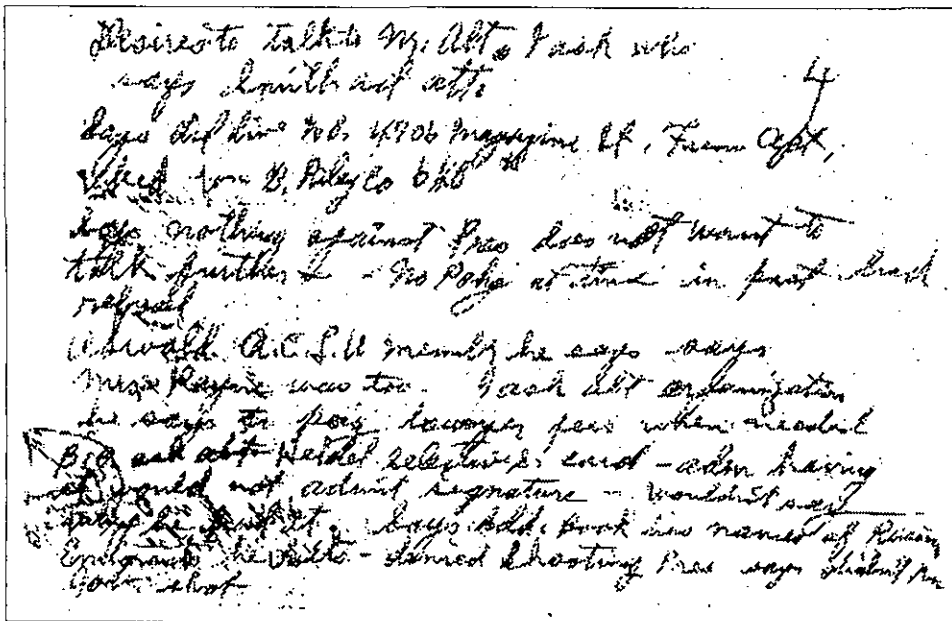 Desires to talk to Mr. Abt. I ask who
says Smith act atty
Says did live N.O. 4706 Magazine St. From Apt.
4
Wked for B. Riley Co 640
Says nothing against Pres does not want to
talk further - No Poly at time in past had
refused
Oswald A.C.L.U member he says says
Mrs. Payne was too. I ask abt organization
he says to pay lawyer fees when needed
B.O. ask abt Heidel selective s. card - adm having
would not admit signature - wouldn't say
why he had it. Says add. book has names of Russian
Emigrants he visits - denied shooting Pres says didn't
Gov. shot